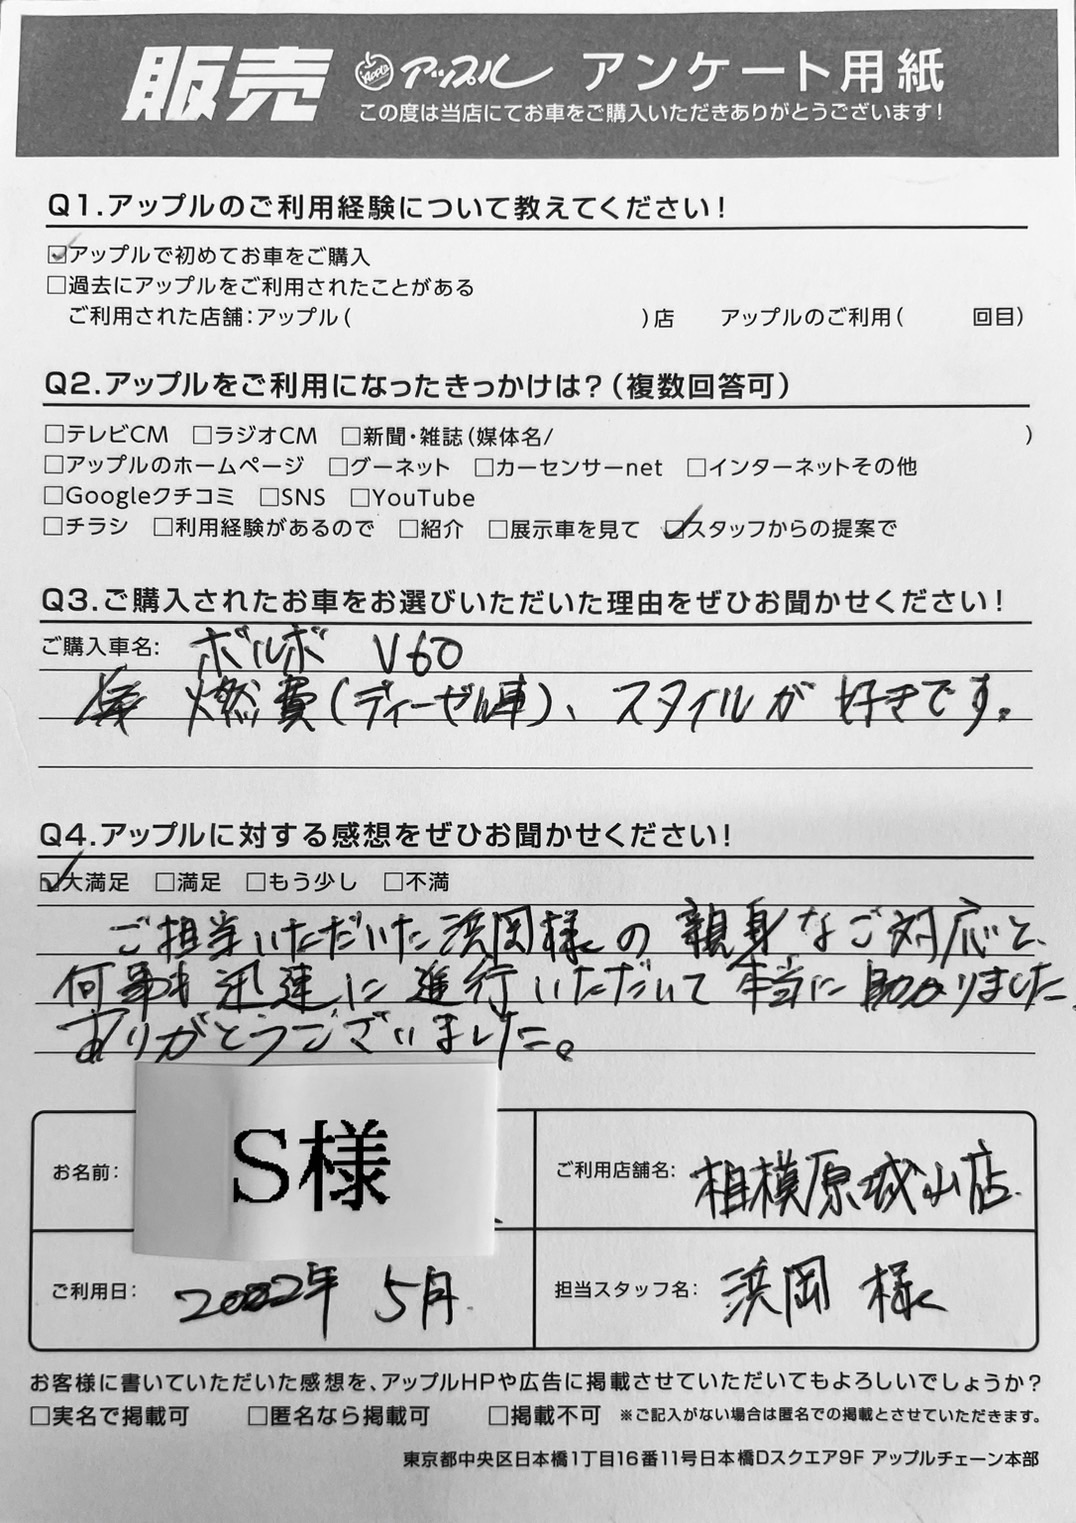 販売 Apple アップル アンケート用紙
この度は当店にてお車をご購入いただきありがとうございます!
Q1.アップルのご利用経験について教えてください!
☑アップルで初めてお車をご購入
□過去にアップルをご利用されたことがある
ご利用された店舗:アップル( )店 アップルのご利用( 回目)
Q2.アップルをご利用になったきっかけは?(複数回答可)
□テレビCM □ラジオCM □新聞・雑誌(媒体名/ )
□アップルのホームページ □グーネット □カーセンサーnet □インターネットその他
□Googleクチコミ □SNS □YouTube
□チラシ □利用経験があるので □紹介 □展示車を見て ☑スタッフからの提案で
Q3.ご購入されたお車をお選びいただいた理由をぜひお聞かせください!
ご購入車名: ボルボ V60
燃費(ディーゼル車)、スタイルが好きです。
Q4.アップルに対する感想をぜひお聞かせください!
☑大満足 □満足 □もう少し □不満
ご担当いただいた浜岡様の親身なご対応と、
何事も迅速に進行いただいて本当に助かりました。
ありがとうございました。
お名前: S様 ご利用店舗名: 相模原城山店
ご利用日: 2022年 5月 担当スタッフ名: 浜岡 様
お客様に書いていただいた感想を、アップルHPや広告に掲載させていただいてもよろしいでしょうか?
□実名で掲載可 □匿名なら掲載可 □掲載不可 ※ご記入がない場合は匿名での掲載とさせていただきます。
東京都中央区日本橋1丁目16番11号日本橋Dスクエア9F アップルチェーン本部